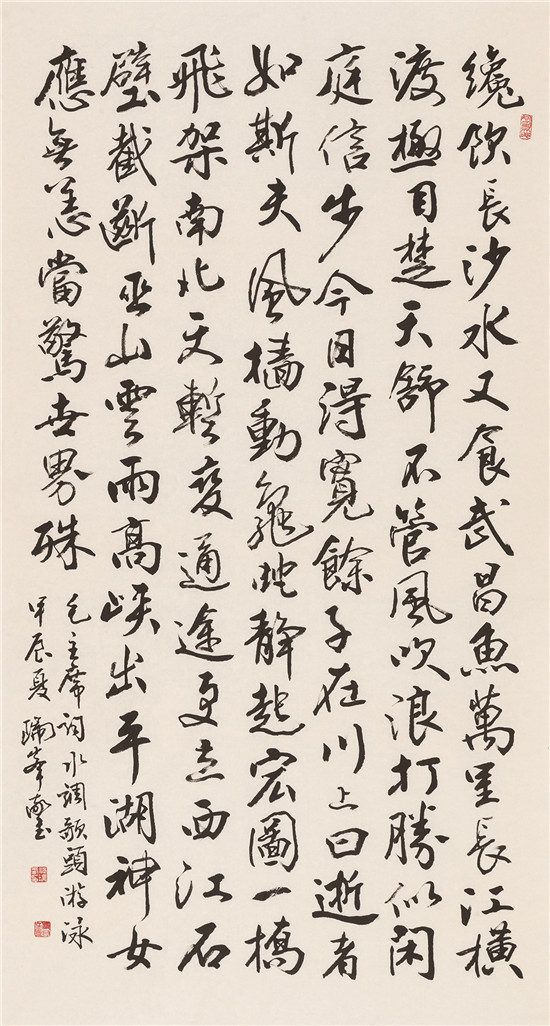 纔飲長沙水又食武昌魚萬里長江橫
渡極目楚天舒不管風吹浪打勝似閑
庭信步今日得寬餘子在川上曰逝者
如斯夫風檣動龜蛇靜起宏圖一橋
飛架南北天塹變通途更立西江石
壁截斷巫山雲雨高峽出平湖神女
應無恙當驚世界殊
毛主席詞水調歌頭游泳
甲辰夏